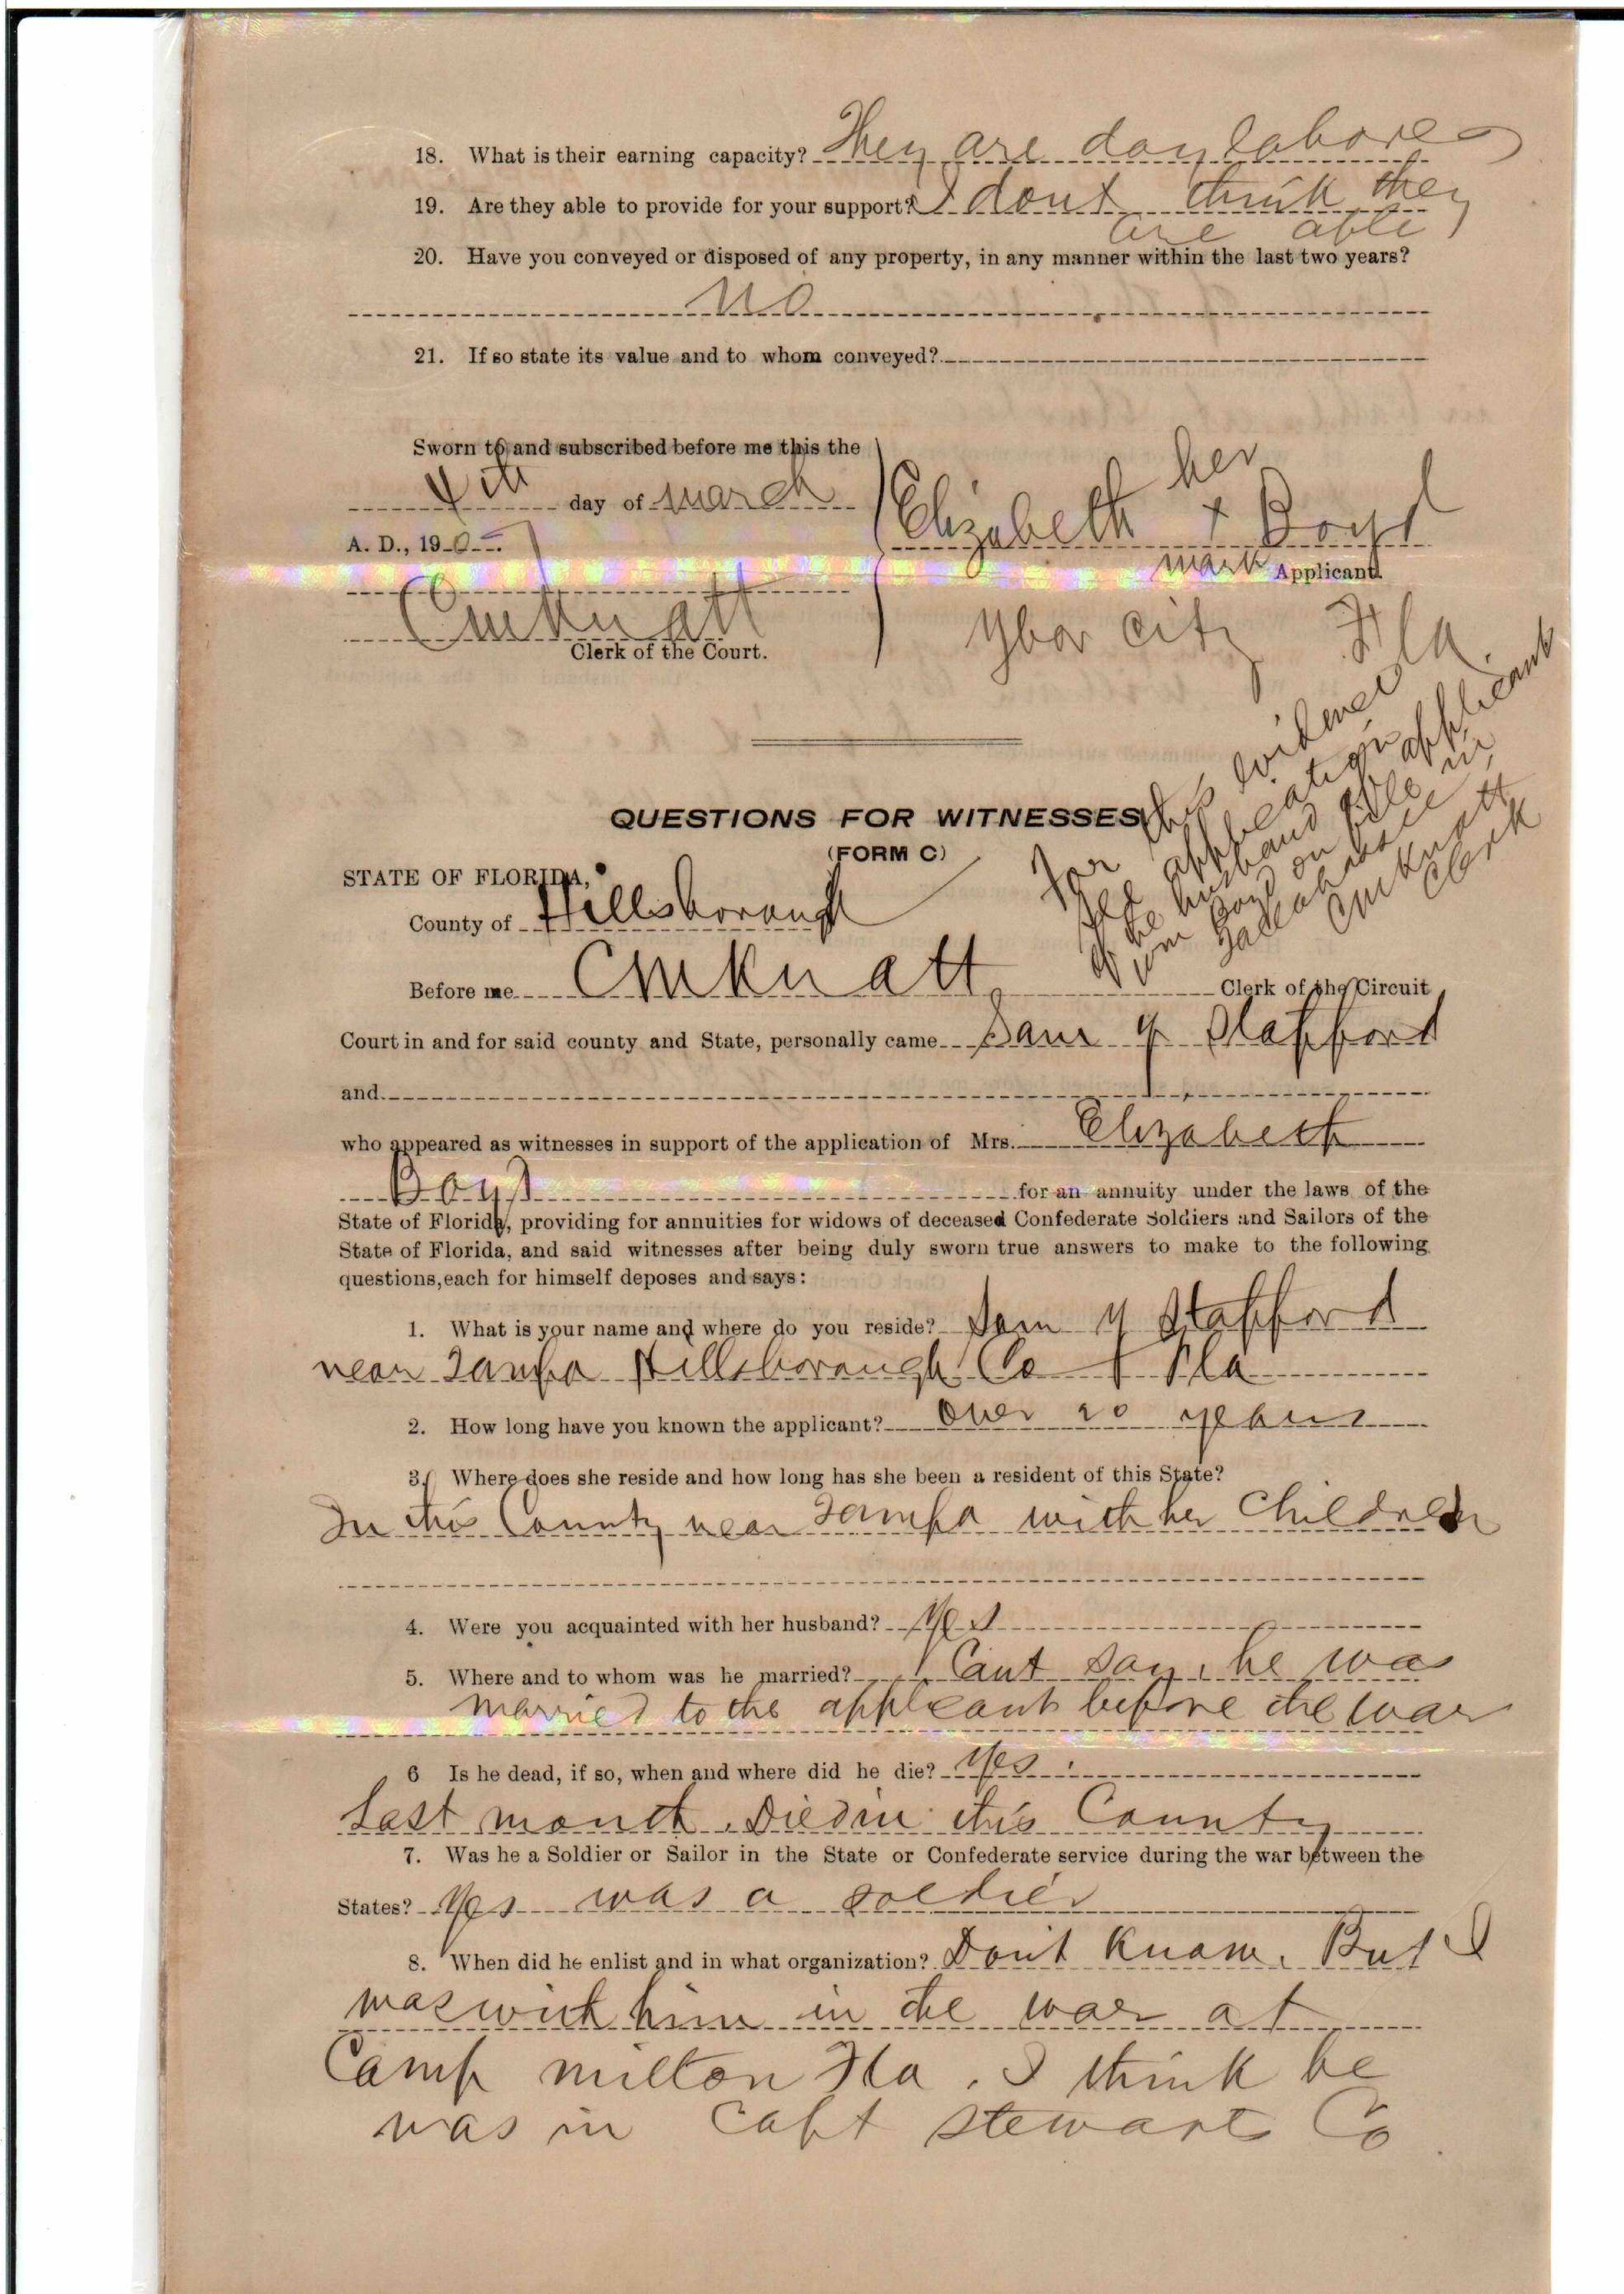 18. What is their earning capacity? They are day labores
19. Are they able to provide for your support? I dont think they
are able
20. Have you conveyed or disposed of any property, in any manner within the last two years?
No
21. If so state its value and to whom conveyed?
Sworn to and subscribed before me this the
day of March
her
Elizabeth x Boyd
A. D., 190
mark Applicant.
Clerk of the Court.
Ybor City Fla.
QUESTIONS FOR WITNESSES
(FORM C)
For this evidence
see application
of the husband of applicant
Wm Boyd on file in
Tallahassee
Clerk
STATE OF FLORIDA,
County of Hillsborough
Before me Clerk of the Circuit
Court in and for said county and State, personally came Sam Y Stafford
and
who appeared as witnesses in support of the application of Mrs. Elizabeth
Boyd for an annuity under the laws of the
State of Florida, providing for annuities for widows of deceased Confederate Soldiers and Sailors of the
State of Florida, and said witnesses after being duly sworn true answers to make to the following
questions, each for himself deposes and says:
1. What is your name and where do you reside? Sam Y Stafford
near Tampa Hillsborough Co Fla
2. How long have you known the applicant? Over 20 years
3. Where does she reside and how long has she been a resident of this State?
In this County near Tampa with her Children
4. Were you acquainted with her husband? Yes
5. Where and to whom was he married? Cant say, he was
married to the applicant before the war
6 Is he dead, if so, when and where did he die? Yes.
Last month. Died in this County
7. Was he a Soldier or Sailor in the State or Confederate service during the war between the
States? Yes was a soldier
8. When did he enlist and in what organization? Dont Know. But I
was with him in the war at
Camp Milton Fla. I think he
was in Capt Stewarts Co